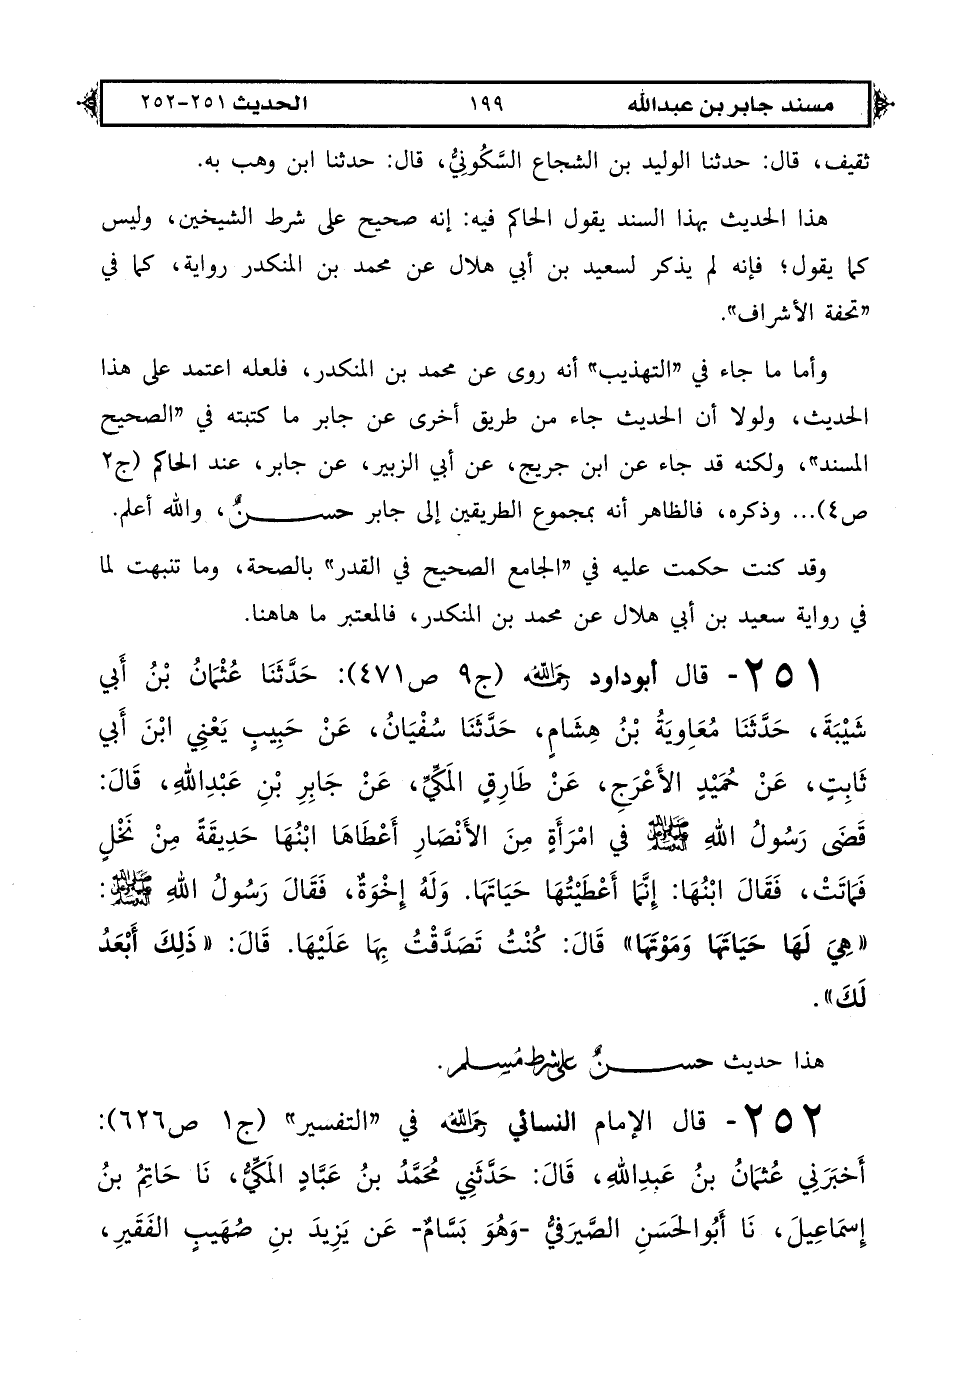 مسند جابر بن عبدالله ١٩٩ الحديث ٢٥١-٢٥٢
ثقيف، قال: حدثنا الوليد بن الشجاع السَّكُونِيُّ، قال: حدثنا ابن وهب به.
هذا الحديث بهذا السند يقول الحاكم فيه: إنه صحيح على شرط الشيخين، وليس
كما يقول؛ فإنه لم يذكر لسعيد بن أبي هلال عن محمد بن المنكدر رواية، كما في
«تحفة الأشراف».
وأما ما جاء في «التهذيب» أنه روى عن محمد بن المنكدر، فلعله اعتمد على هذا
الحديث، ولولا أن الحديث جاء من طريق أخرى عن جابر ما كتبته في «الصحيح
المسند»، ولكنه قد جاء عن ابن جريج، عن أبي الزبير، عن جابر، عند الحاكم (ج٢
ص٤)... وذكره، فالظاهر أنه بمجموع الطريقين إلى جابر حســـنٌ، والله أعلم.
وقد كنت حكمت عليه في «الجامع الصحيح في القدر» بالصحة، وما تنبهت لما
في رواية سعيد بن أبي هلال عن محمد بن المنكدر، فالمعتبر ما هاهنا.
٢٥١- قال أبوداود رحمه الله (ج٩ ص٤٧١): حَدَّثَنَا عُثْمَانُ بْنُ أَبِي
شَيْبَةَ، حَدَّثَنَا مُعَاوِيَةُ بْنُ هِشَامٍ، حَدَّثَنَا سُفْيَانُ، عَنْ حَبِيبٍ يَعْنِي ابْنَ أَبِي
ثَابِتٍ، عَنْ حُمَيْدٍ الأَعْرَجِ، عَنْ طَارِقٍ المَكِّيِّ، عَنْ جَابِرِ بْنِ عَبْدِاللهِ، قَالَ:
قَضَى رَسُولُ اللهِ ﷺ فِي امْرَأَةٍ مِنَ الأَنْصَارِ أَعْطَاهَا ابْنُهَا حَدِيقَةً مِنْ نَخْلٍ
فَمَاتَتْ، فَقَالَ ابْنُهَا: إِنَّمَا أَعْطَيْتُهَا حَيَاتَهَا. وَلَهُ إِخْوَةٌ، فَقَالَ رَسُولُ اللهِ ﷺ:
«هِيَ لَهَا حَيَاتَهَا وَمَوْتَهَا» قَالَ: كُنْتُ تَصَدَّقْتُ بِهَا عَلَيْهَا. قَالَ: «ذَلِكَ أَبْعَدُ
لَكَ».
هذا حديث حســـنٌ على شرط مُسلم.
٢٥٢- قال الإمام النسائي رحمه الله في «التفسير» (ج١ ص٦٢٦):
أَخبَرَنِي عُثمَانُ بنُ عَبدِاللهِ، قَالَ: حَدَّثَنِي مُحَمَّدُ بنُ عَبَّادٍ المَكِّيُّ، نَا حَاتِمُ بنُ
إِسمَاعِيلَ، نَا أَبُوالحَسَنِ الصَّيرَفيُّ -وَهُوَ بَسَّامٌ- عَن يَزِيدَ بنِ صُهَيبٍ الفَقِيرِ،